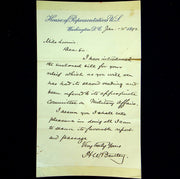 House of Representatives U.S.
Washington D.C. Jan
Dear Sir
I have introduced
the enclosed bill for your
relief which as you will see
has had its second reading and
been referred to its appropriate
Committee on Military Affairs.
I assure you I shall take
pleasure in doing all I can
to secure its favorable report
and passage
Very truly Yours